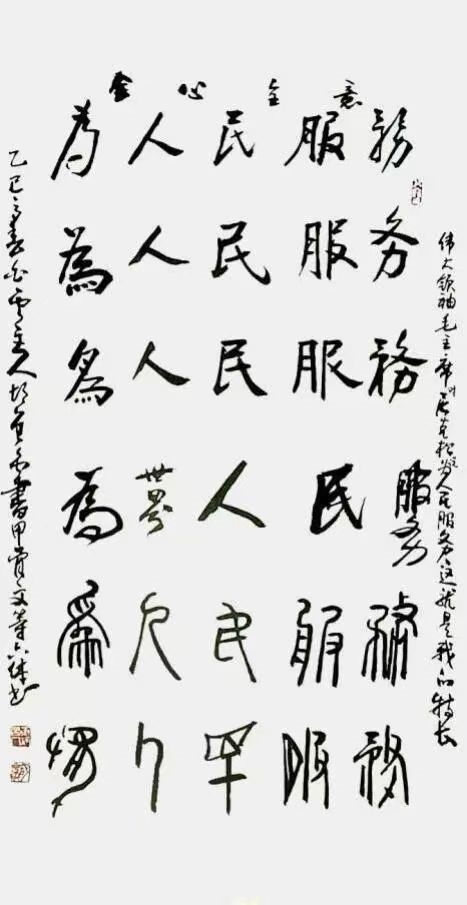 全心全意
為人民服務
為人民服务
為人民服務
為世界人民服务
為人民服務
為人民服務
伟大领袖毛主席为人民服务这就是我的特长
乙巳之春主人書甲骨文等六体书